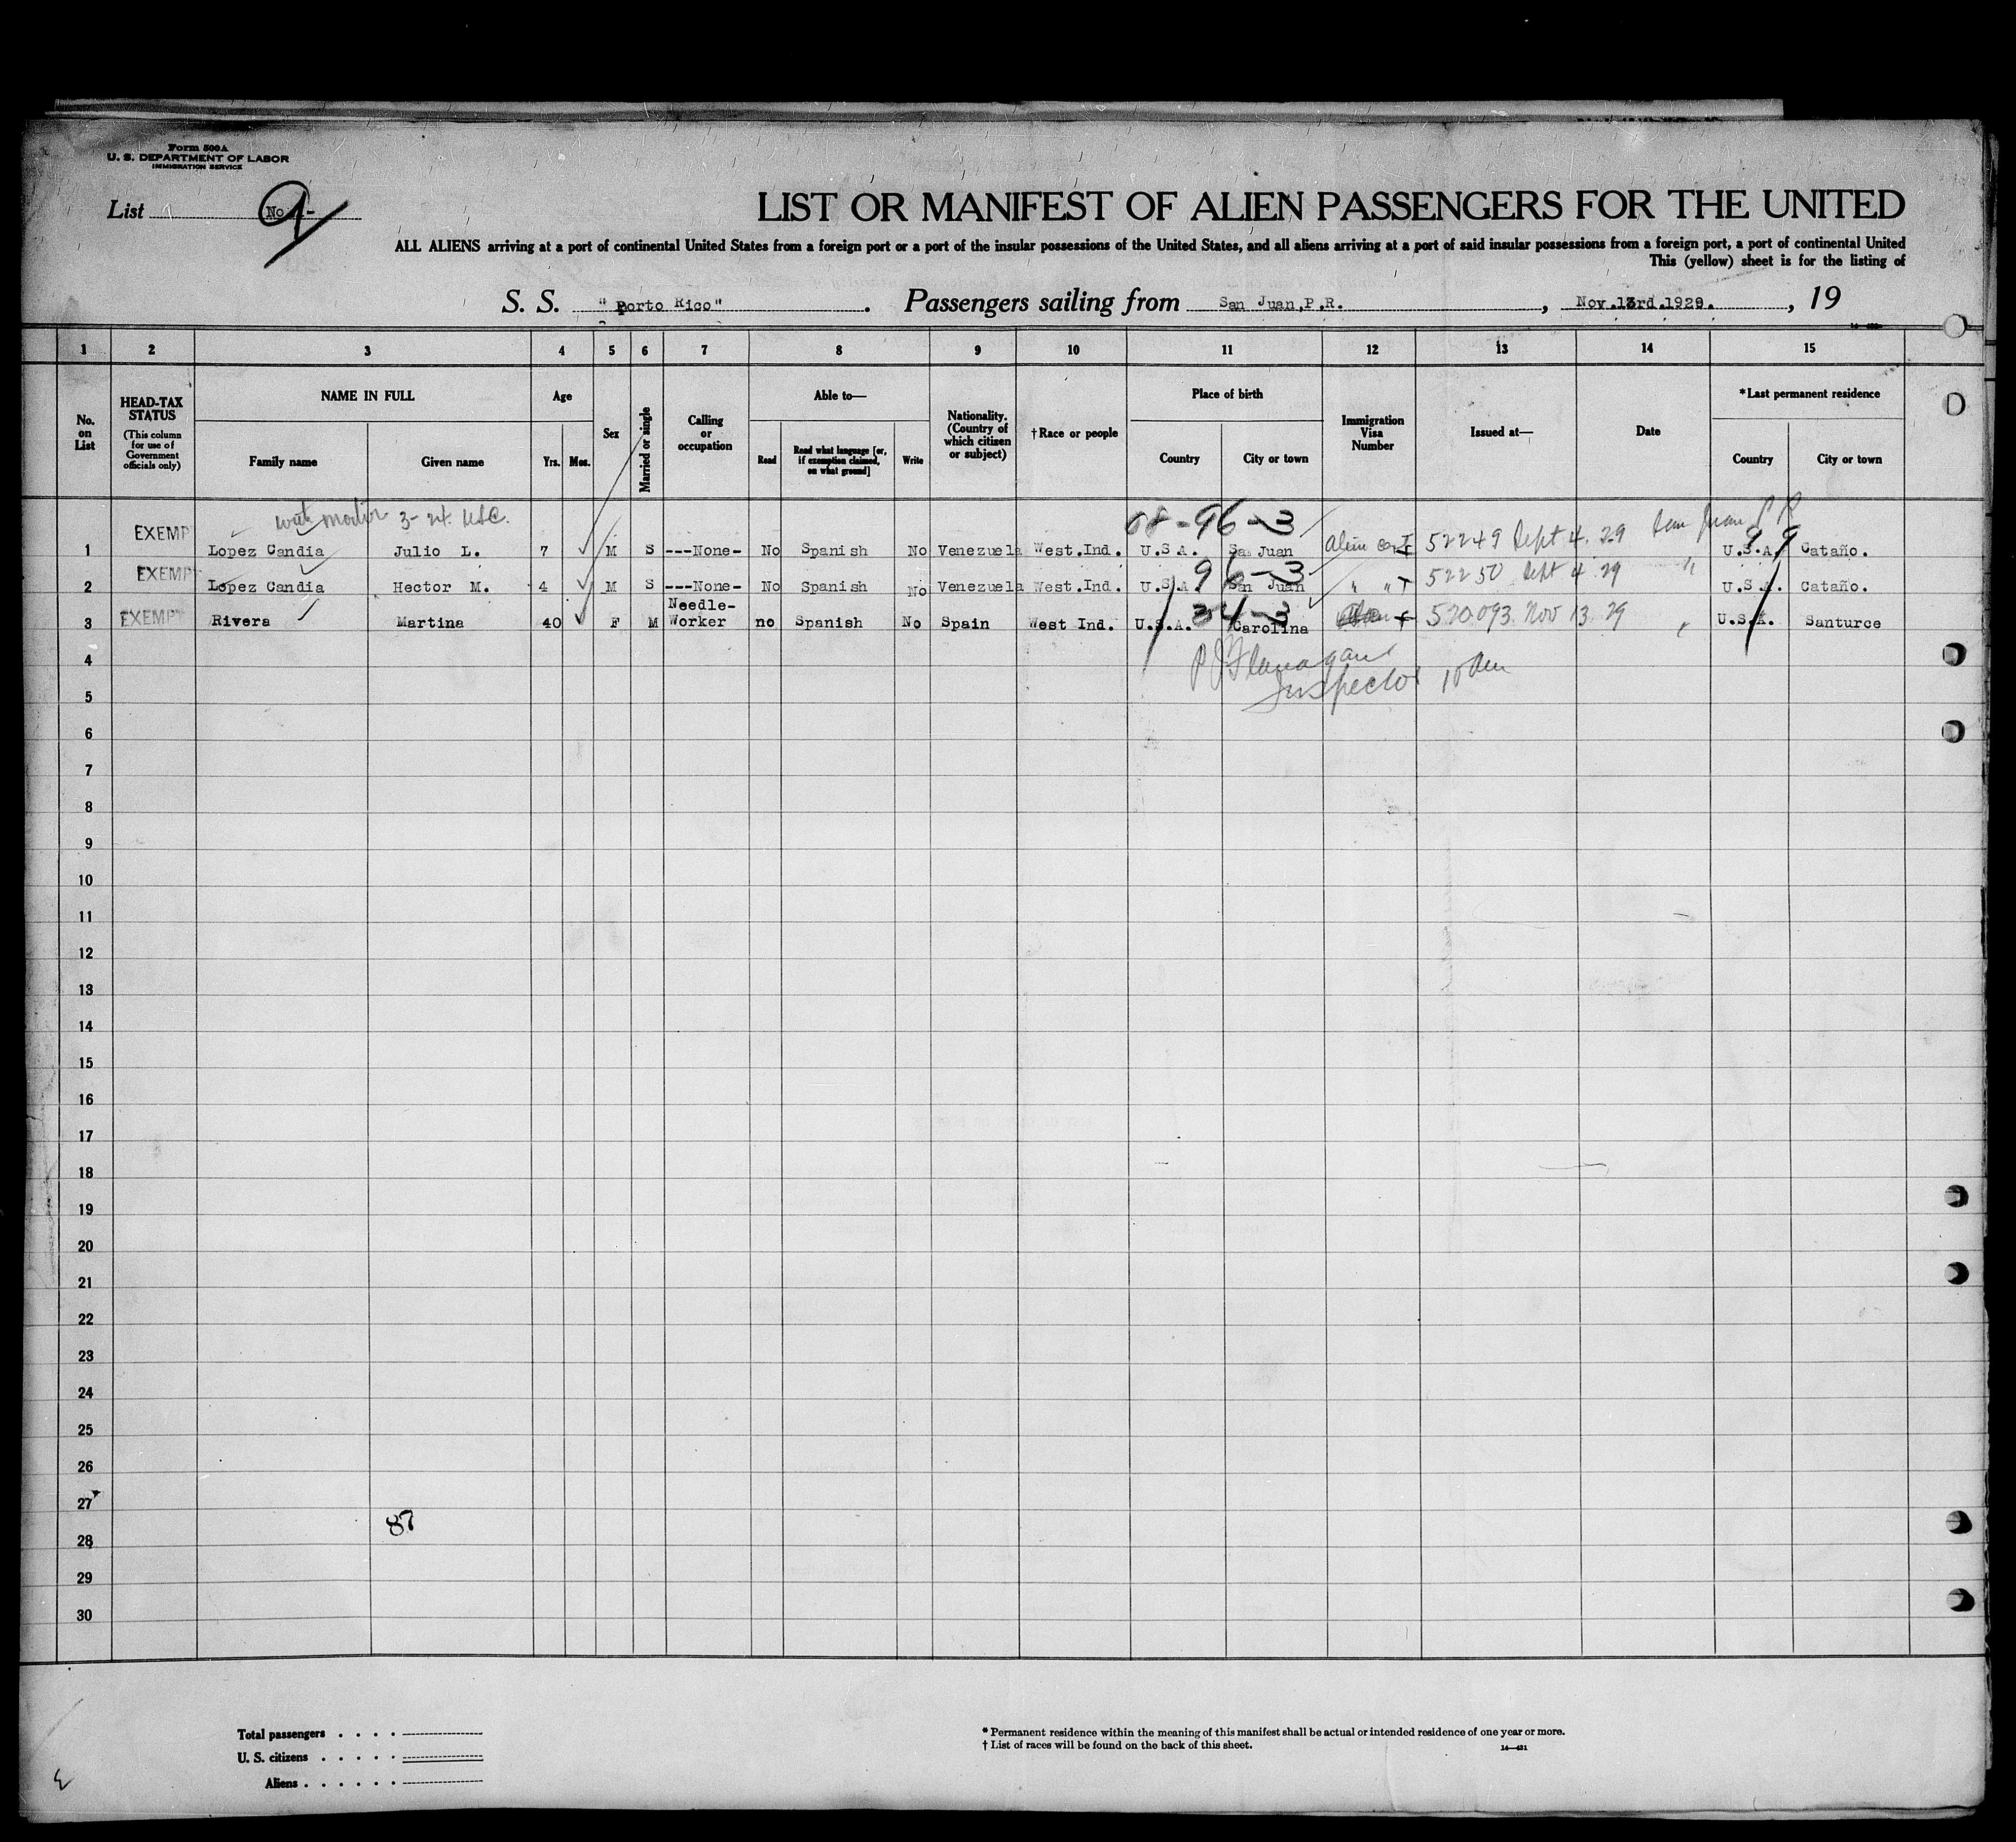 Form 500A
U. S. DEPARTMENT OF LABOR
IMMIGRATION SERVICE
List No. 9
LIST OR MANIFEST OF ALIEN PASSENGERS FOR THE UNITED
ALL ALIENS arriving at a port of continental United States from a foreign port or a port of the insular possessions of the United States, and all aliens arriving at a port of said insular possessions from a foreign port, a port of continental United
This (yellow) sheet is for the listing of
S. S. "Porto Rico". Passengers sailing from San Juan, P.R., Nov. 13rd. 1929., 19
1 2 3 4 5 6 7 8 9 10 11 12 13 14 15
No. on List
HEAD-TAX STATUS (This column for use of Government officials only)
NAME IN FULL
Family name
Given name
Age
Yrs. Mos.
Sex
Married or single
Calling or occupation
Able to—
Read
Read what language [or, if exemption claimed, on what ground]
Write
Nationality. (Country of which citizen or subject)
†Race or people
Place of birth
Country
City or town
Immigration Visa Number
Issued at—
Date
*Last permanent residence
Country
City or town
3-24 USC. 68-96-3 San Juan P R
1 EXEMP Lopez Candia Julio L. 7 M S ---None- No Spanish No Venezuela West.Ind. U.S.A. San Juan Alien 52249 Sept 4. 29 U.S.A. Cataño.
96-3
2 EXEMP Lopez Candia Hector M. 4 M S ---None- No Spanish No Venezuela West.Ind. U.S.A. San Juan " " 52250 Sept 4 29 " U.S.A. Cataño.
34-3
3 EXEMPT Rivera Martina 40 F M Needle-Worker no Spanish No Spain West Ind. U.S.A. Carolina 520093 Nov 13 29 " U.S.A. Santurce
4 P J Flanagan
5 Inspector
6
7
8
9
10
11
12
13
14
15
16
17
18
19
20
21
22
23
24
25
26
27
87
28
29
30
Total passengers . . . .
U. S. citizens . . . . .
Aliens . . . . . .
* Permanent residence within the meaning of this manifest shall be actual or intended residence of one year or more.
† List of races will be found on the back of this sheet.
14—421